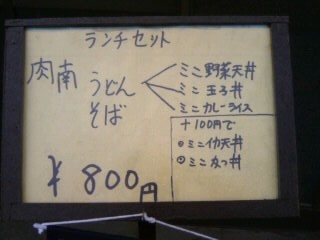 ランチセット
肉南 うどん
そば
ミニ野菜天丼
ミニ玉子丼
ミニカレーライス
+100円で
◎ミニイカ天丼
◎ミニカツ丼
¥800円